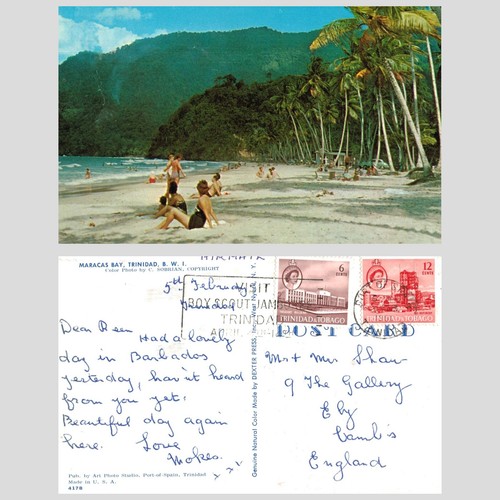 MARACAS BAY, TRINIDAD, B. W. I.
Color Photo by C. SOBRIAN, COPYRIGHT
AIRMAIL
5th February
Dear Reen
Had a lovely
day in Barbados
yesterday, hav'nt heard
from you yet.
Beautiful day again
here. Love
Mokes.
Pub. by Art Photo Studio, Port-of-Spain, Trinidad
Made in U. S. A.
4178
Genuine Natural Color Made by DEXTER PRESS, Inc., West Nyack, N. Y.
VISIT
BOY SCOUT JAMB
TRINIDA
APRIL
6
CENTS
TRINIDAD & TOBAGO
12
CENTS
TRINIDAD & TOBAGO
POST CARD
Mr + Mrs Shaw
9 The Gallery
Ely
Camb's
England